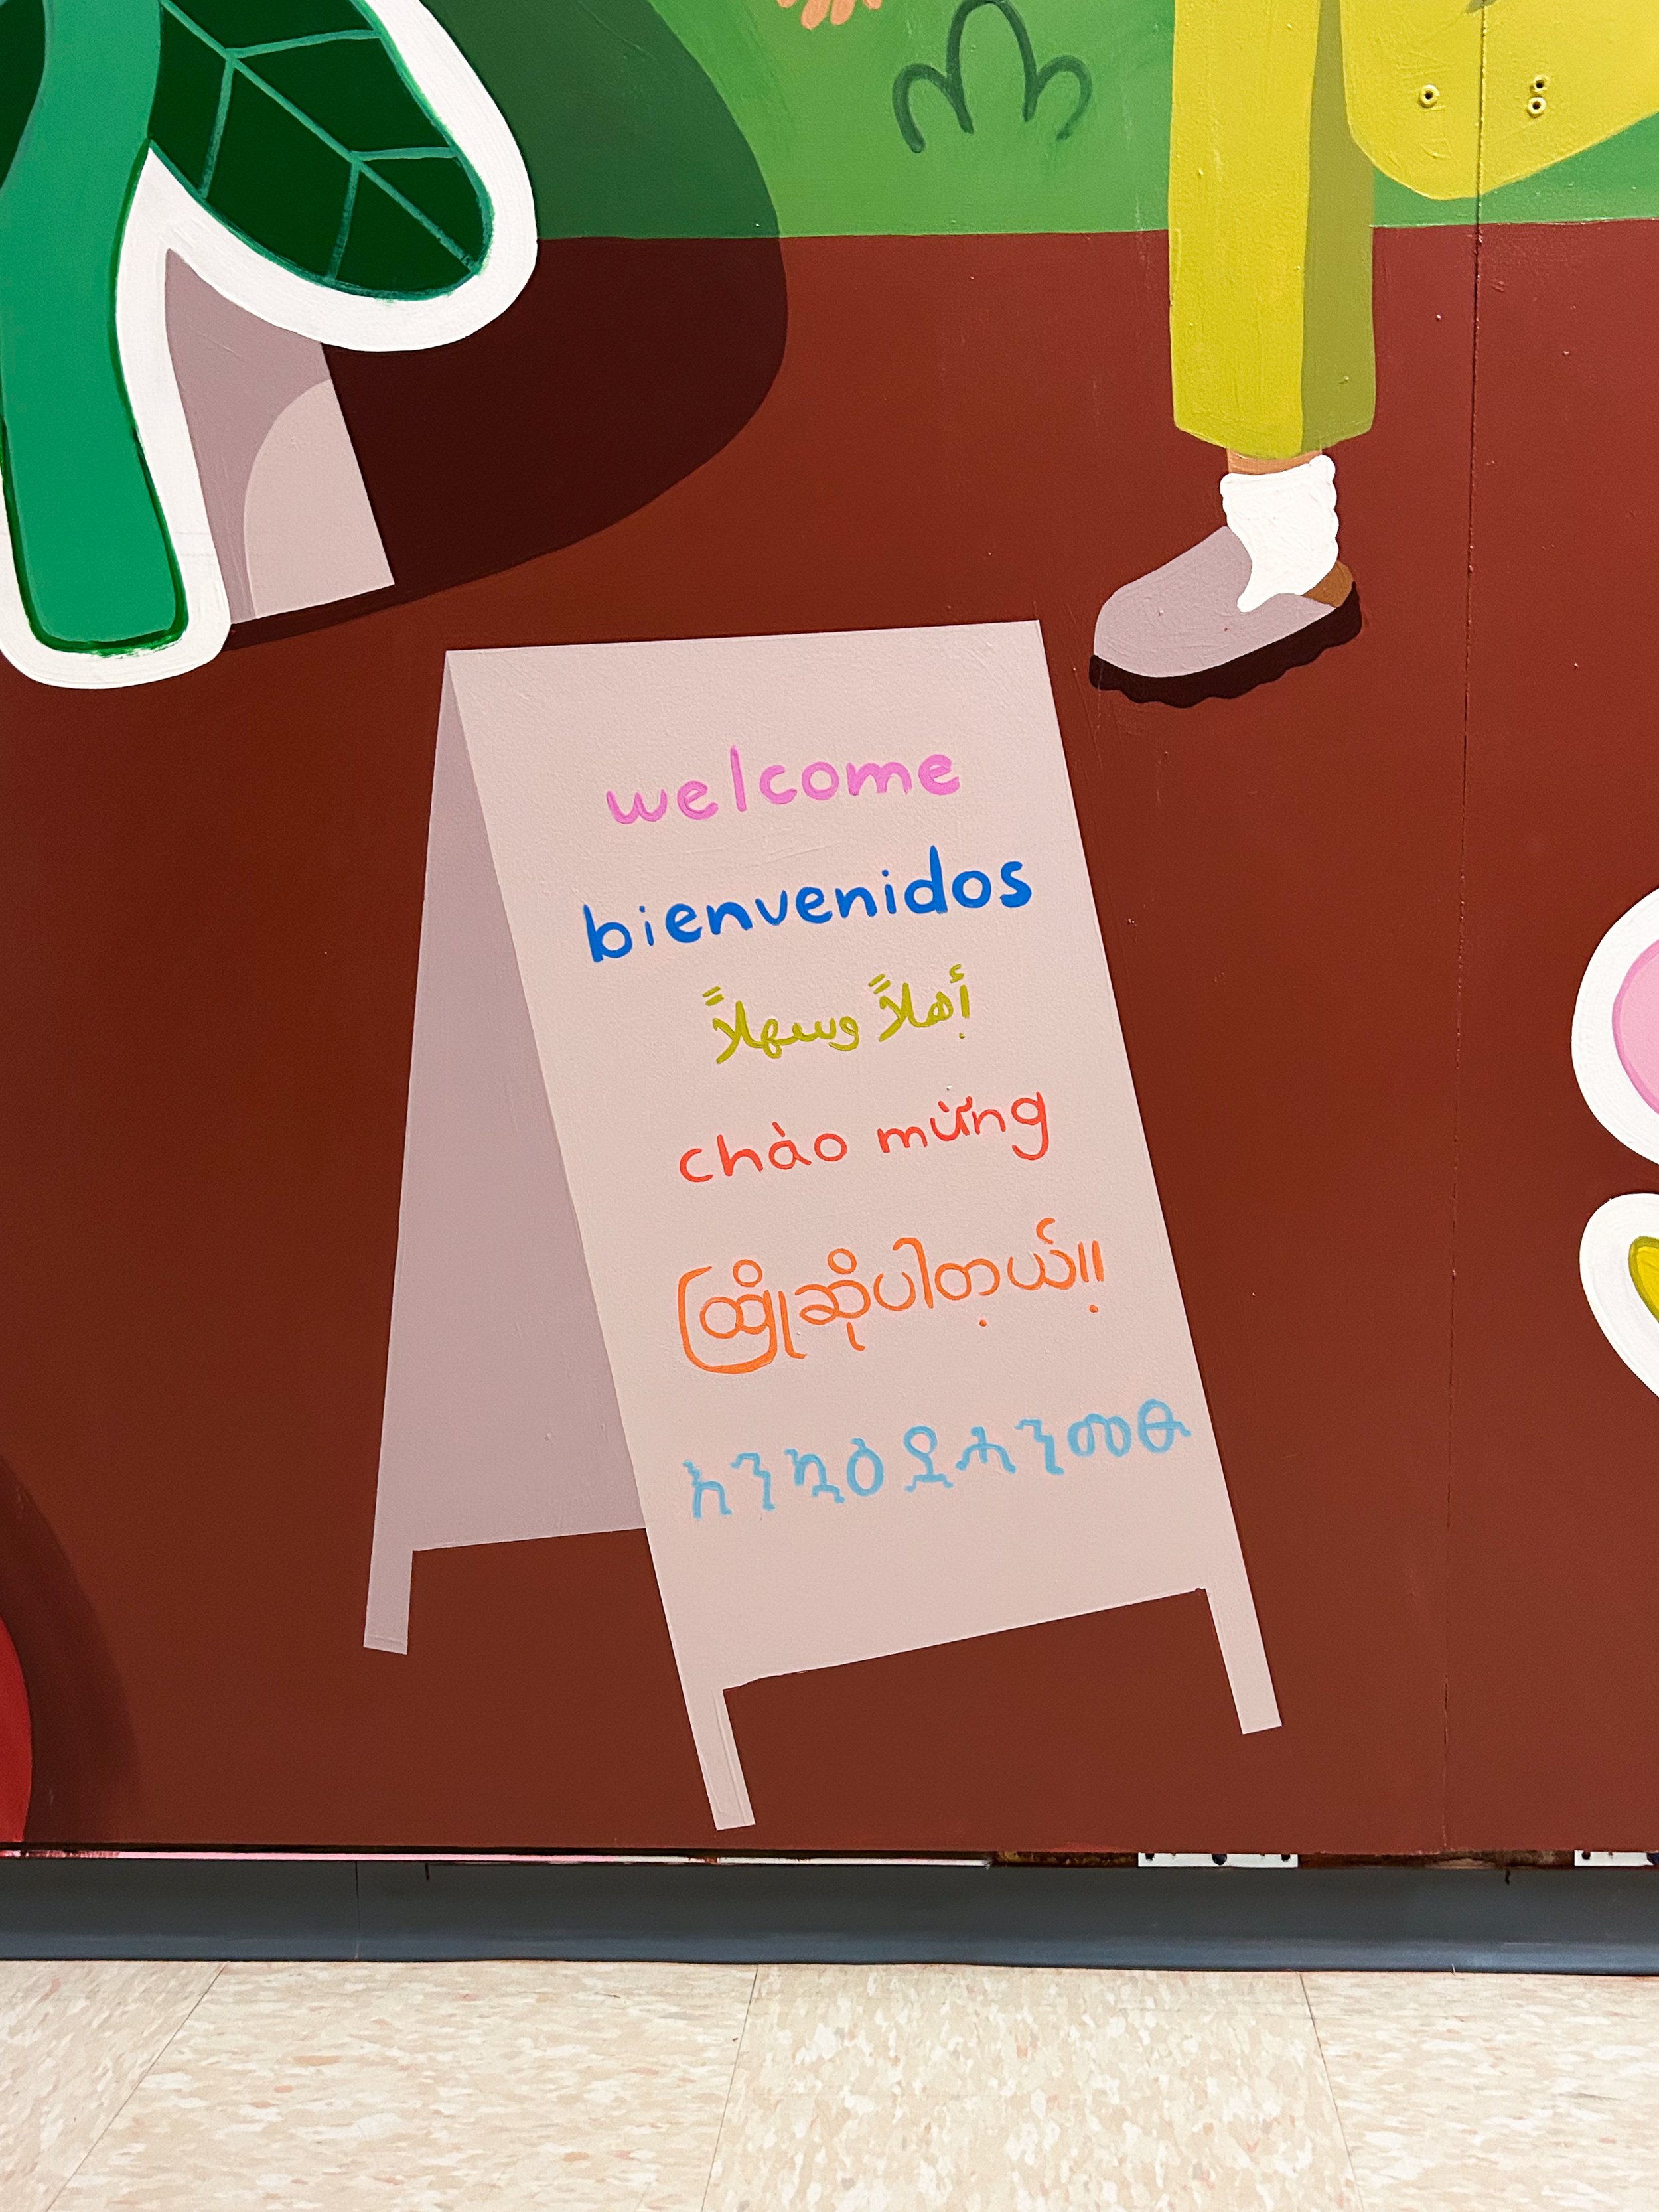 welcome
bienvenidos
أهلاً وسهلاً
chào mừng
ကြိုဆိုပါတ့ယ်။
እንኳዕ ደሓን መፁ